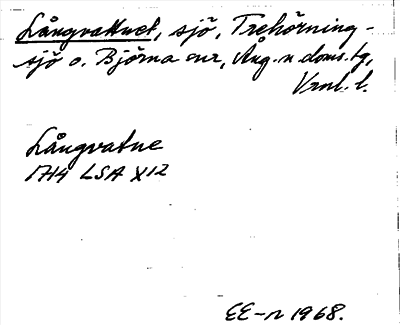 Långvattnet, sjö, Trehörning-
sjö o. Björna snr, Ång. n. doms.tg,
Vrnl. l.
Långvatne
1714 LSA X12
EE-n 1968.